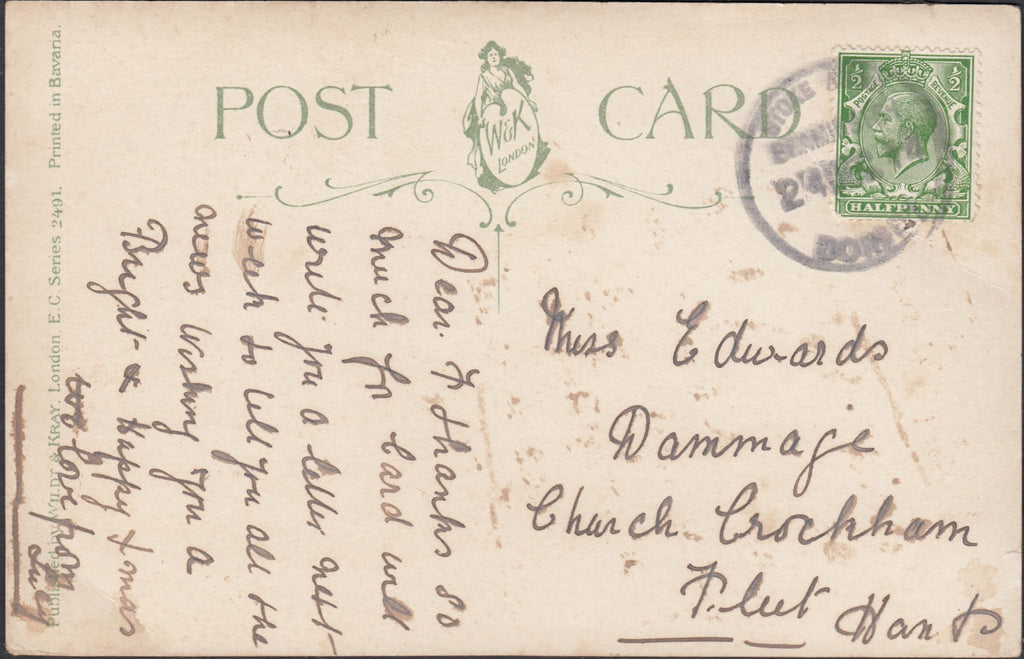 POST CARD
W&K
LONDON
½ ½
POSTAGE REVENUE
HALFPENNY
STOKE
24
DOR
Published by WILDT & KRAY, London, E.C. Series 2491. Printed in Bavaria.
Dear F thanks so
much for card will
write you a letter next
week to tell you all the
news Wishing you a
Bright & Happy Xmas
love from
Miss Edwards
Dammage
Church Crockham
Fleet Hants